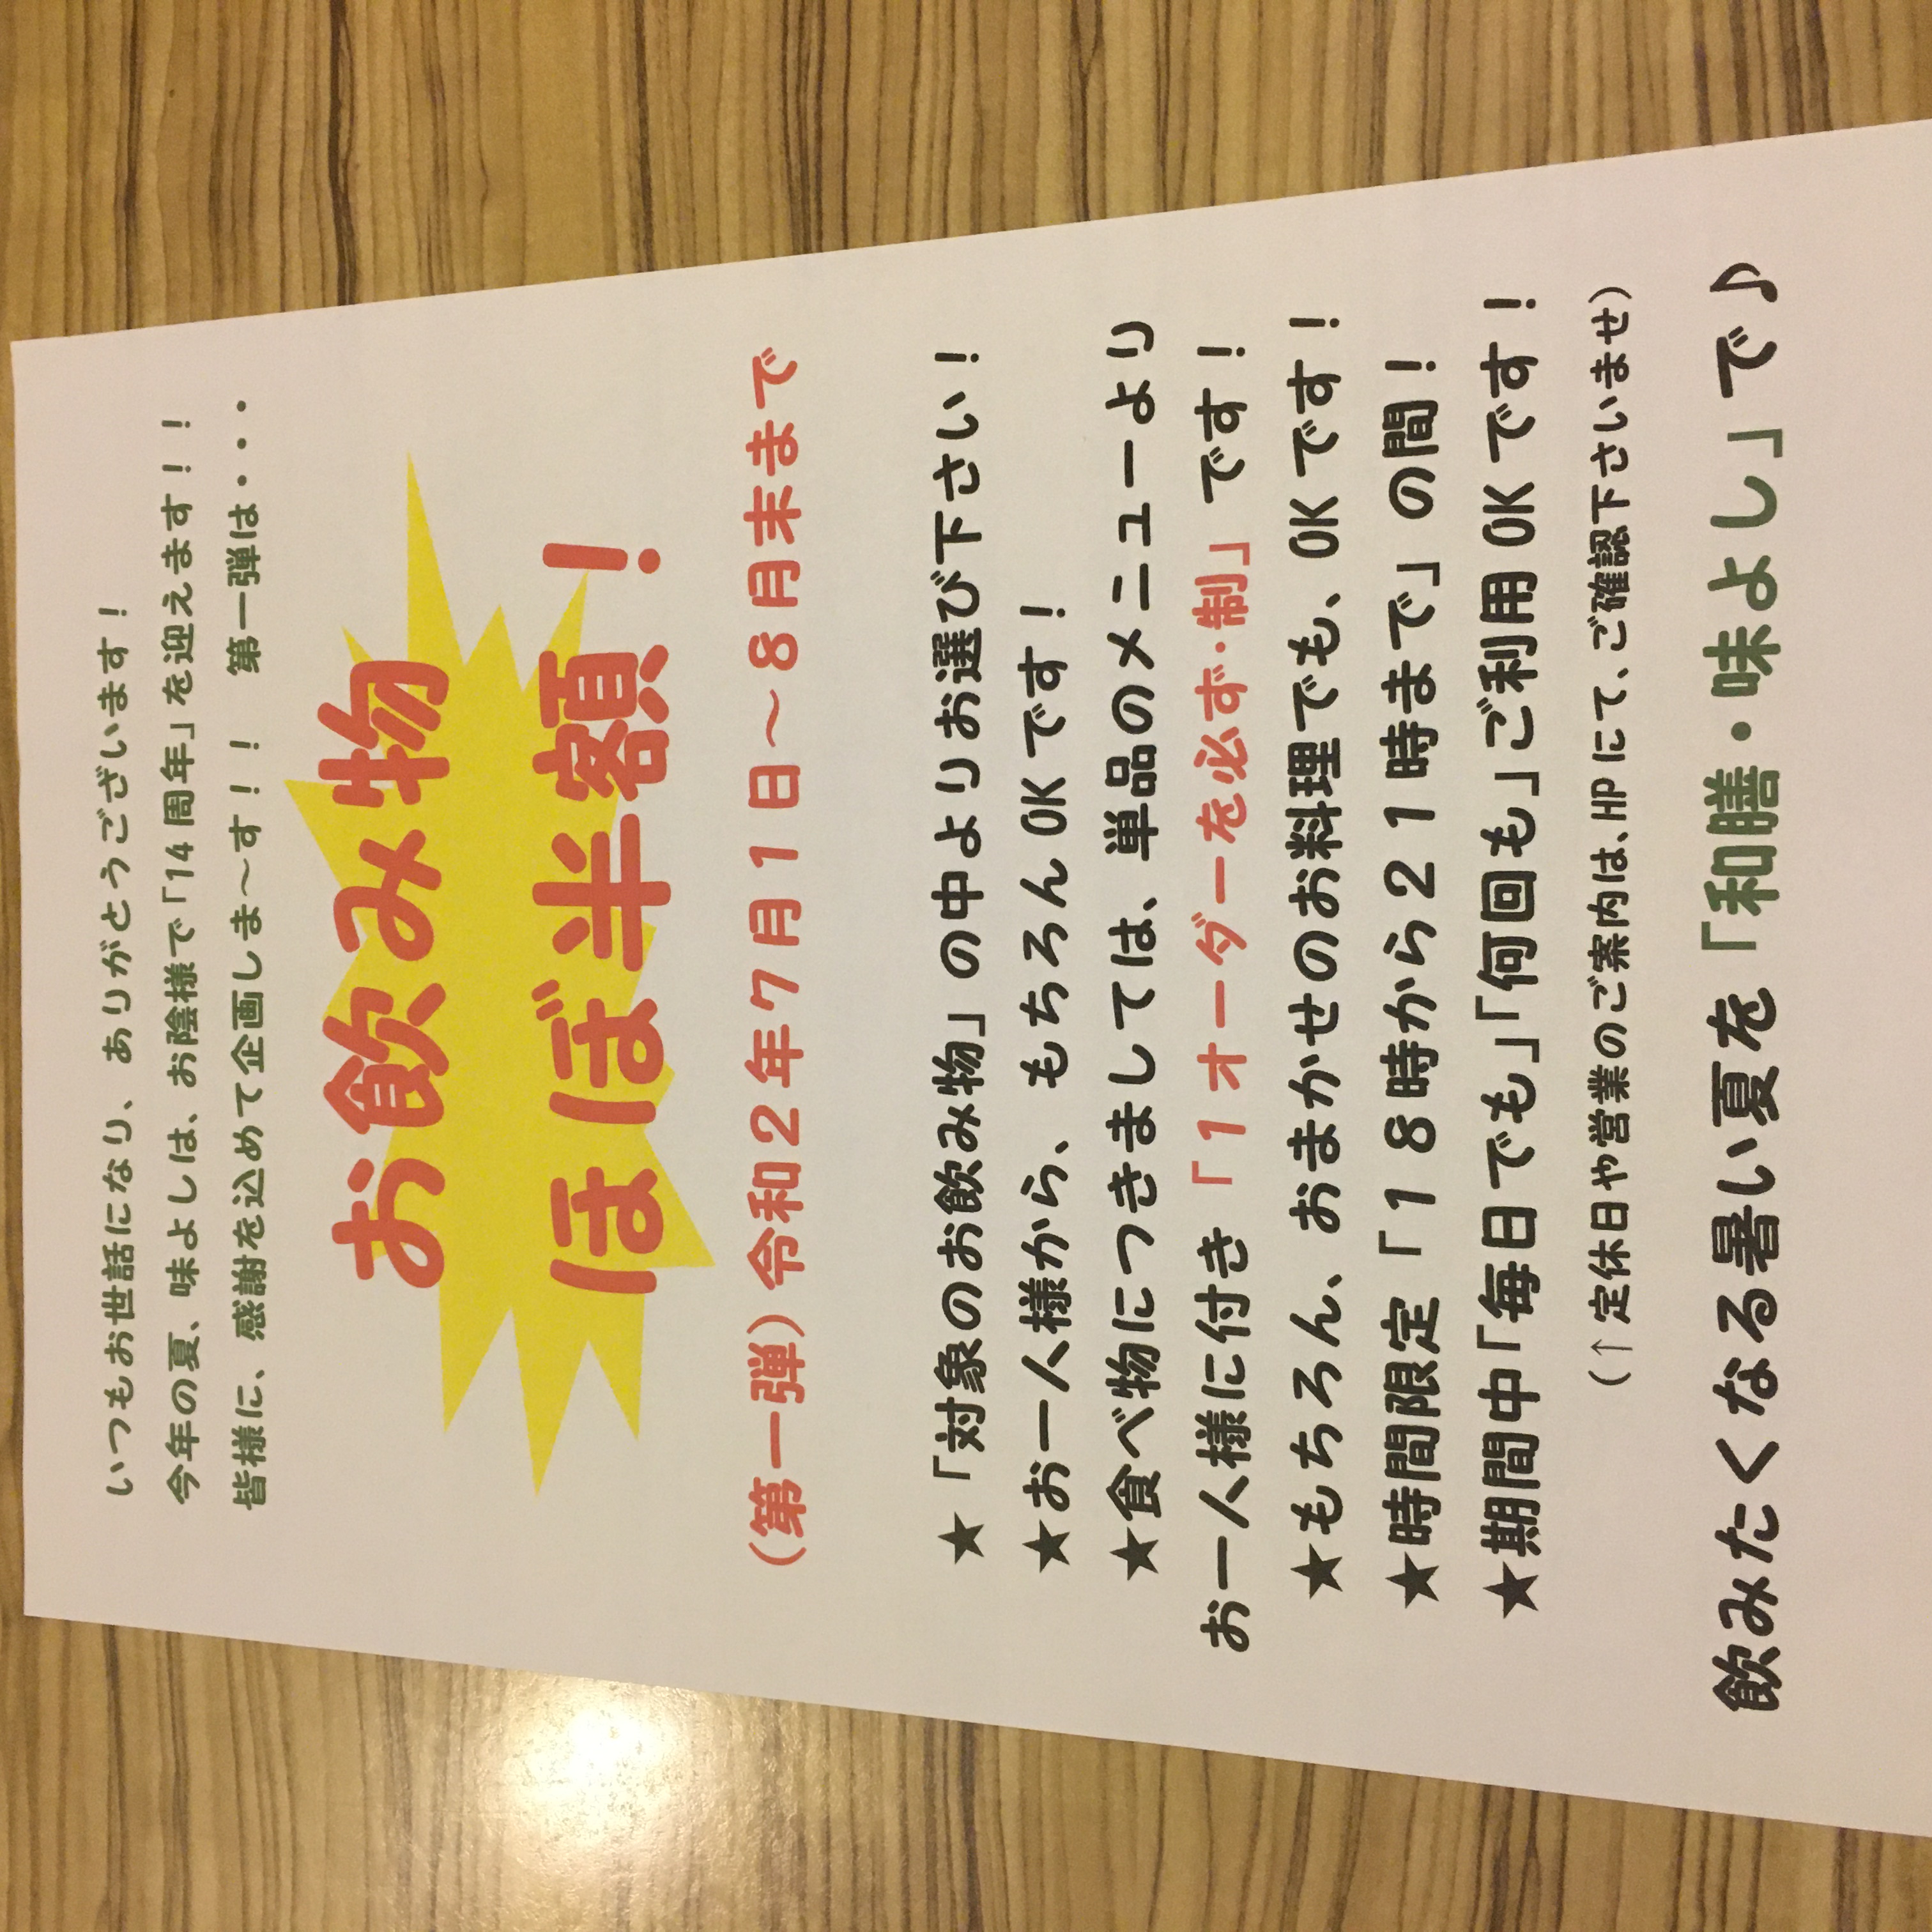 いつもお世話になり、ありがとうございます！
今年の夏、味よしは、お陰様で「14周年」を迎えます！！
皆様に、感謝を込めて企画しま～す！！　第一弾は・・・
お飲み物
ほぼ半額！
（第一弾）令和２年７月１日～８月末まで
★「対象のお飲み物」の中よりお選び下さい！
★お一人様から、もちろんOKです！
★食べ物につきましては、単品のメニューより
お一人様に付き「１オーダーを必ず・制」です！
★もちろん、おまかせのお料理でも、OKです！
★時間限定「１８時から２１時まで」の間！
★期間中「毎日でも」「何回も」ご利用OKです！
（↑定休日や営業のご案内は、HPにて、ご確認下さいませ）
飲みたくなる暑い夏を「和膳・味よし」で♪